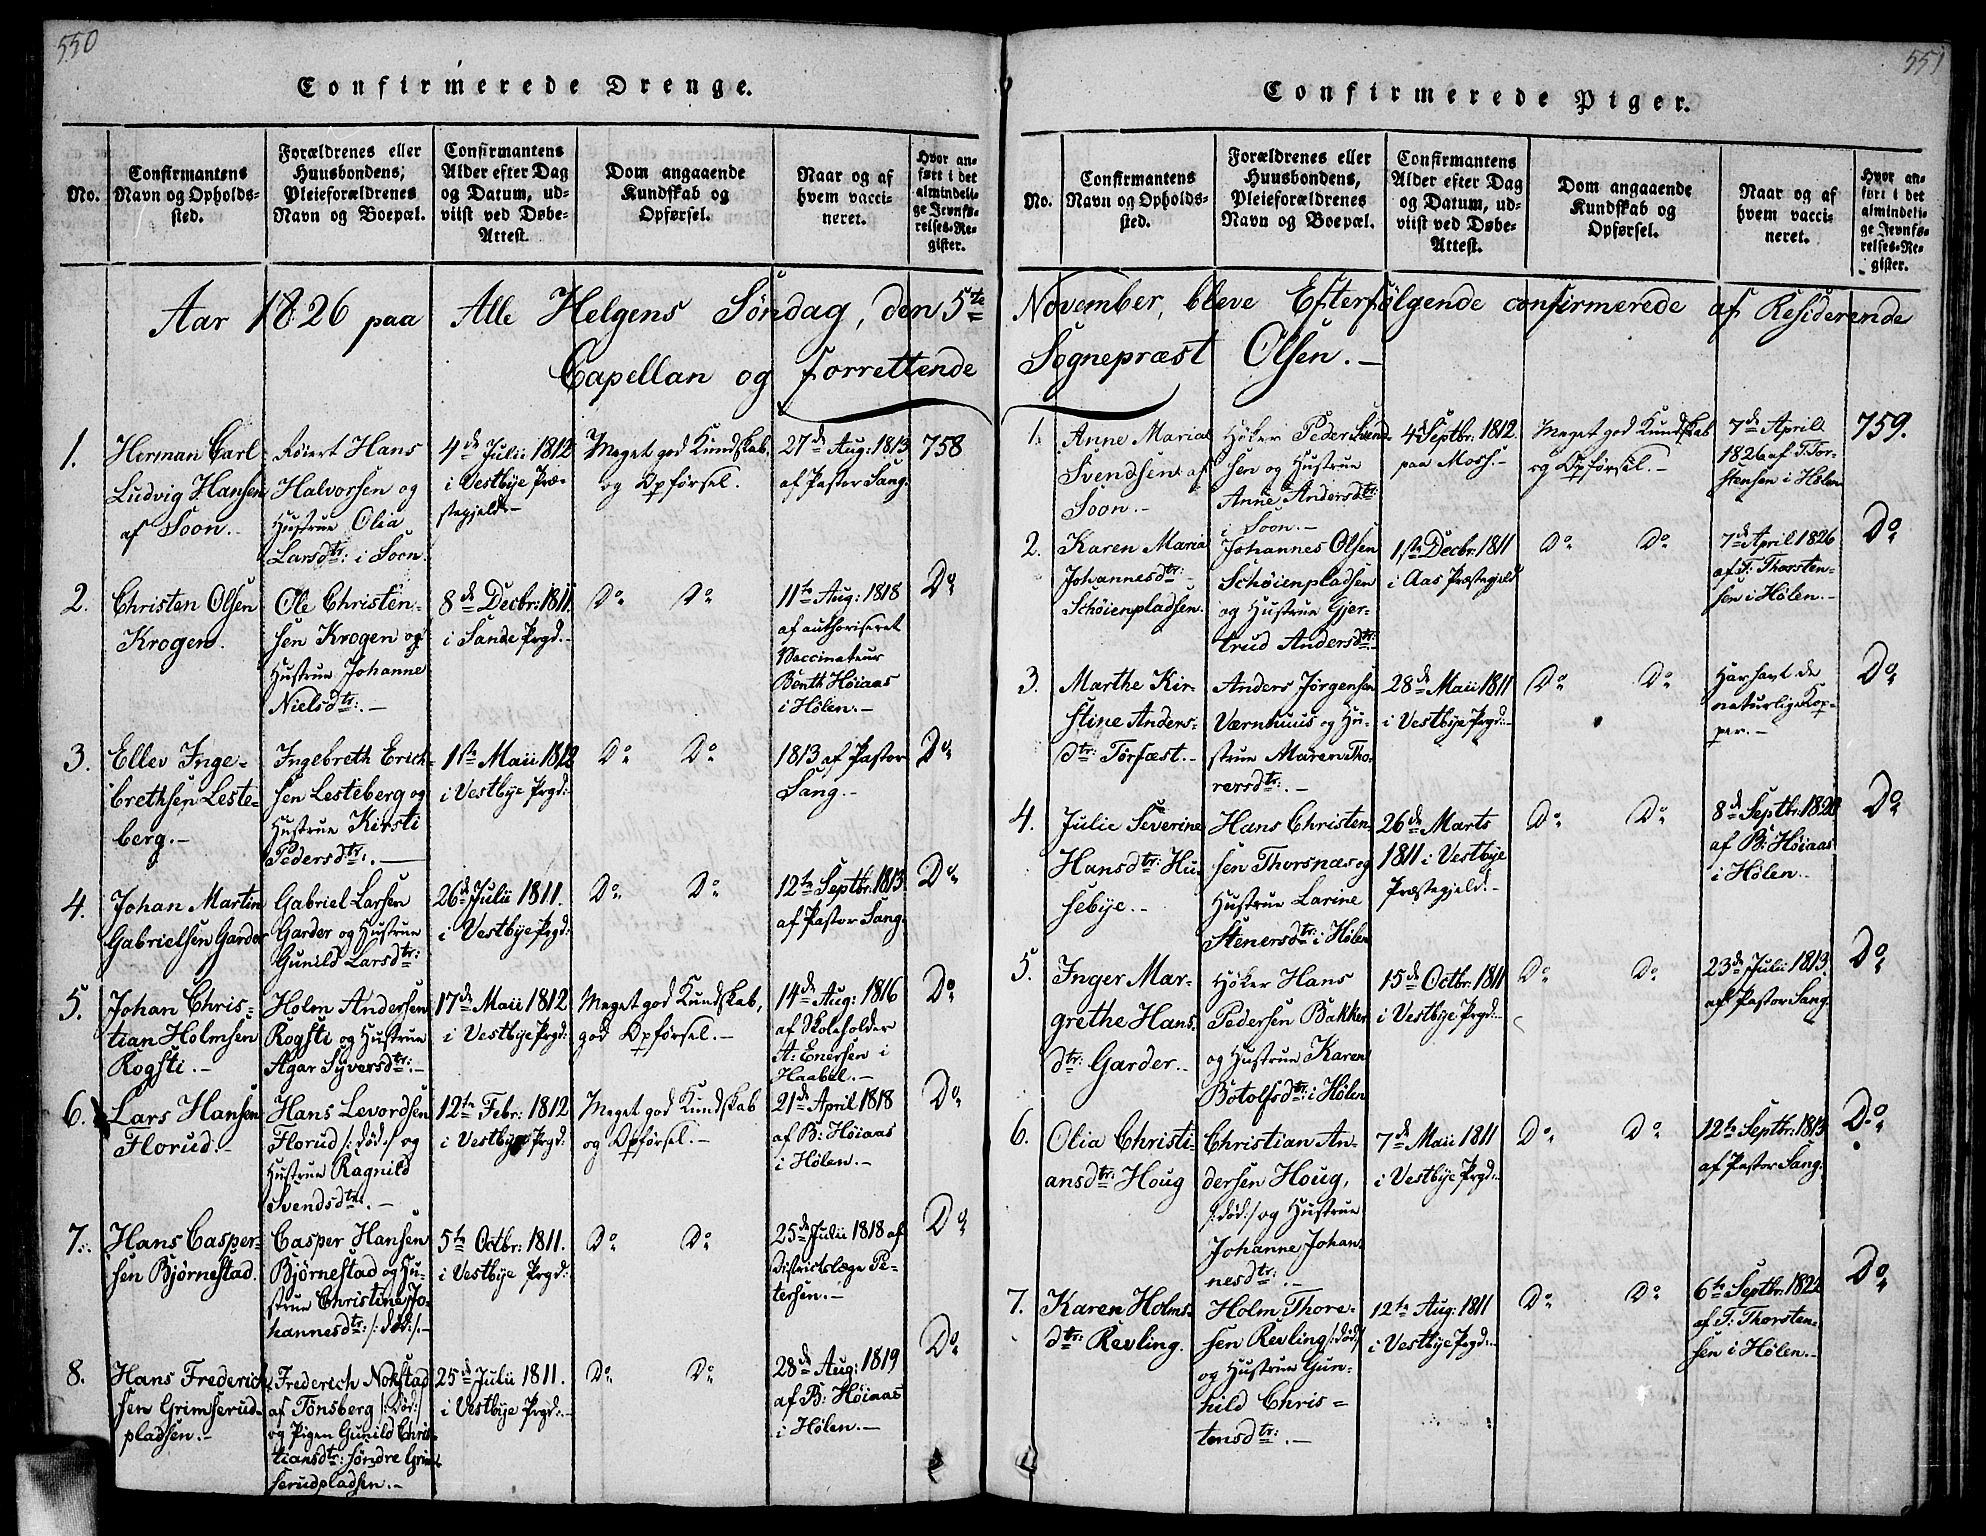 550
Confirmerede Drenge.
No.
Confirmantens
Navn og Opholds-
sted.
Forældrenes eller
Huusbondens,
Pleieforældrenes
Navn og Boepæl.
Confirmantens
Alder efter Dag
og Datum, ud-
viist ved Døbe-
Attest.
Dom angaaende
Kundskab og
Opførsel.
Naar og af
hvem vacci-
neret.
Hvor an-
ført i det
almindeli-
ge Jevnfø-
relses-Re-
gister.
Aar 1826 paa Alle Helgens Søndag, den 5te
Capellan og forrettende
1.
Herman Carl
Ludvig Hansen
af Soon.-
Røiert Hans
Halvorsen og
Hustrue Olia
Larsdtr: i Soon.
4de Julii 1812
i Vestbye Præ-
stegjeld.-
Meget god Kundskab,
og Opførsel.
27de Aug: 1813
af Pastor Sang.
758
2.
Christen Olsen
Krogen.
Ole Christen-
sen Krogen og
Hustrue Johanne
Nielsdtr:.-
8de Decbr: 1811.
i Sande Prgd:-
Do Do
11te Aug: 1818
af authoriseret
Vaccinateur
Bento Høiaas
i Hølen.-
Do
3.
Ellev Inge-
brethsen Leste-
berg.-
Ingebreth Erich-
sen Lesteberg og
Hustrue Kirsti
Pedersdtr:.-
1ste Maii 1812
i Vestbye Prgd:
Do Do
1813 af Pastor
Sang.-
Do
4.
Johan Martin
Gabrielsen Garder
Gabriel Larsen
Garder og Hustrue
Gunild Larsdtr:
26de Julii 1811.
i Vestbye Prgd:
Do Do
12te Septbr: 1813.
af Pastor Sang.
Do
5.
Johan Chris-
tian Holmsen
Rogsti.-
Holm Andersen
Rogsti og Hustrue
Agar Syversdtr:-
17de Maii 1812
i Vestbye Prgd:
Meget god Kundskab,
god Opførsel.-
14de Aug: 1816
af Skoleholder
A: Enersen i
Haabøl.-
Do
6.
Lars Hansen
Florud.-
Hans Levordsen
Florud /: død :/ og
Hustrue Ragnild
Svendsdtr:.-
12te Febr: 1812
i Vestbye Prgd:
Meget god Kundskab
og Opførsel.-
21de April 1818
af B: Høiaas
i Hølen.-
Do
7.
Hans Casper-
sen Bjørnestad.
Casper Hansen
Bjørnestad og Hu-
strue Christine Jo-
hannesdtr: /: død :/.-
5te Octbr: 1811.
i Vestbye Prgd:
Do Do
25de Julii 1818 af
Districtslæge Pe-
tersen.-
Do
8.
Hans Frederich-
sen Grimserud-
pladsen.-
Frederich Nokstad
af Tønsberg /: Død :/
og Pigen Gunild Chris-
tiansdtr: søndre Grim-
serudpladsen.-
25de Julii 1811.
i Vestbye Prgd:-
Do Do
28de Aug: 1819
af B: Høiaas
i Hølen.-
Do
551
Confirmerede Piger.
No.
Confirmantens
Navn og Opholds-
sted.
Forældrenes eller
Huusbondens,
Pleieforældrenes
Navn og Boepæl.
Confirmantens
Alder efter Dag
og Datum, ud-
viist ved Døbe-
Attest.
Dom angaaende
Kundskab og
Opførsel.
Naar og af
hvem vacci-
neret.
Hvor an-
ført i det
almindeli-
ge Jevnfø-
relses-Re-
gister.
November, bleve Efterfølgende confirmerede af Residerende
Sognepræst Olsen.-
1.
Anne Maria
Svendsen af
Soon.-
Høker Peder Svend-
sen og Hustrue
Anne Andersdtr:
i Soon.-
4de Septbr: 1812.
paa Moss.-
Meget god Kundskab
og Opførsel.-
7de April
1826 af T. Tor-
stensen i Hølen
759.
2.
Karen Maria
Johannesdtr:
Schøienpladsen.
Johannes Olsen
Schøienpladsen
og Hustrue Gjer-
trud Andersdtr:
1ste Decbr: 1811
i Aas Præstegjeld
Do Do
7de April 1826
af T: Thorsten-
sen i Hølen.-
Do
3.
Marthe Kir-
stine Anders-
dtr: Tørfæst.-
Anders Jørgensen
Værnhuus og Hu-
strue Maren Tho-
rersdtr:.-
28de Maii 1811
i Vestbye Prgd:-
Do Do
Har havt de
naturlige Kop-
per.-
Do
4.
Julie Severine
Hansdtr: Hu-
sebye.-
Hans Christen-
sen Thorsnæs og
Hustrue Larine
Stenersdtr: i Hølen
26de Marts
1811 i Vestbye
Præstegjeld.-
Do Do
8de Septbr: 1820
af B: Høiaas
i Hølen.-
Do
5.
Inger Mar-
grethe Hans-
dtr: Garder.-
Høker Hans
Pedersen Bakker
og Hustrue Karen
Botolfsdtr: i Hølen
15de Octbr: 1811
i Vestbye Prgd:-
Do Do
23de Julii 1813.
af Pastor Sang.
Do
6.
Olia Christi-
ansdtr: Houg
Christian An-
dersen Houg,
/: død :/ og Hustrue
Johanne Johan-
nesdtr:.-
7de Maii 1811
i Vestbye Prgd:-
Do Do
12te Septbr: 1813
af Pastor Sang.
Do
7.
Karen Holms-
dtr: Revling.
Holm Thore-
sen Revling /: død :/
og Hustrue Gun-
hild Chris-
tensdtr:.-
12te Aug: 1811
i Vestbye Prgd:-
Do Do
6te Septbr: 1822
af T: Thorsten-
sen i Hølen.-
Do